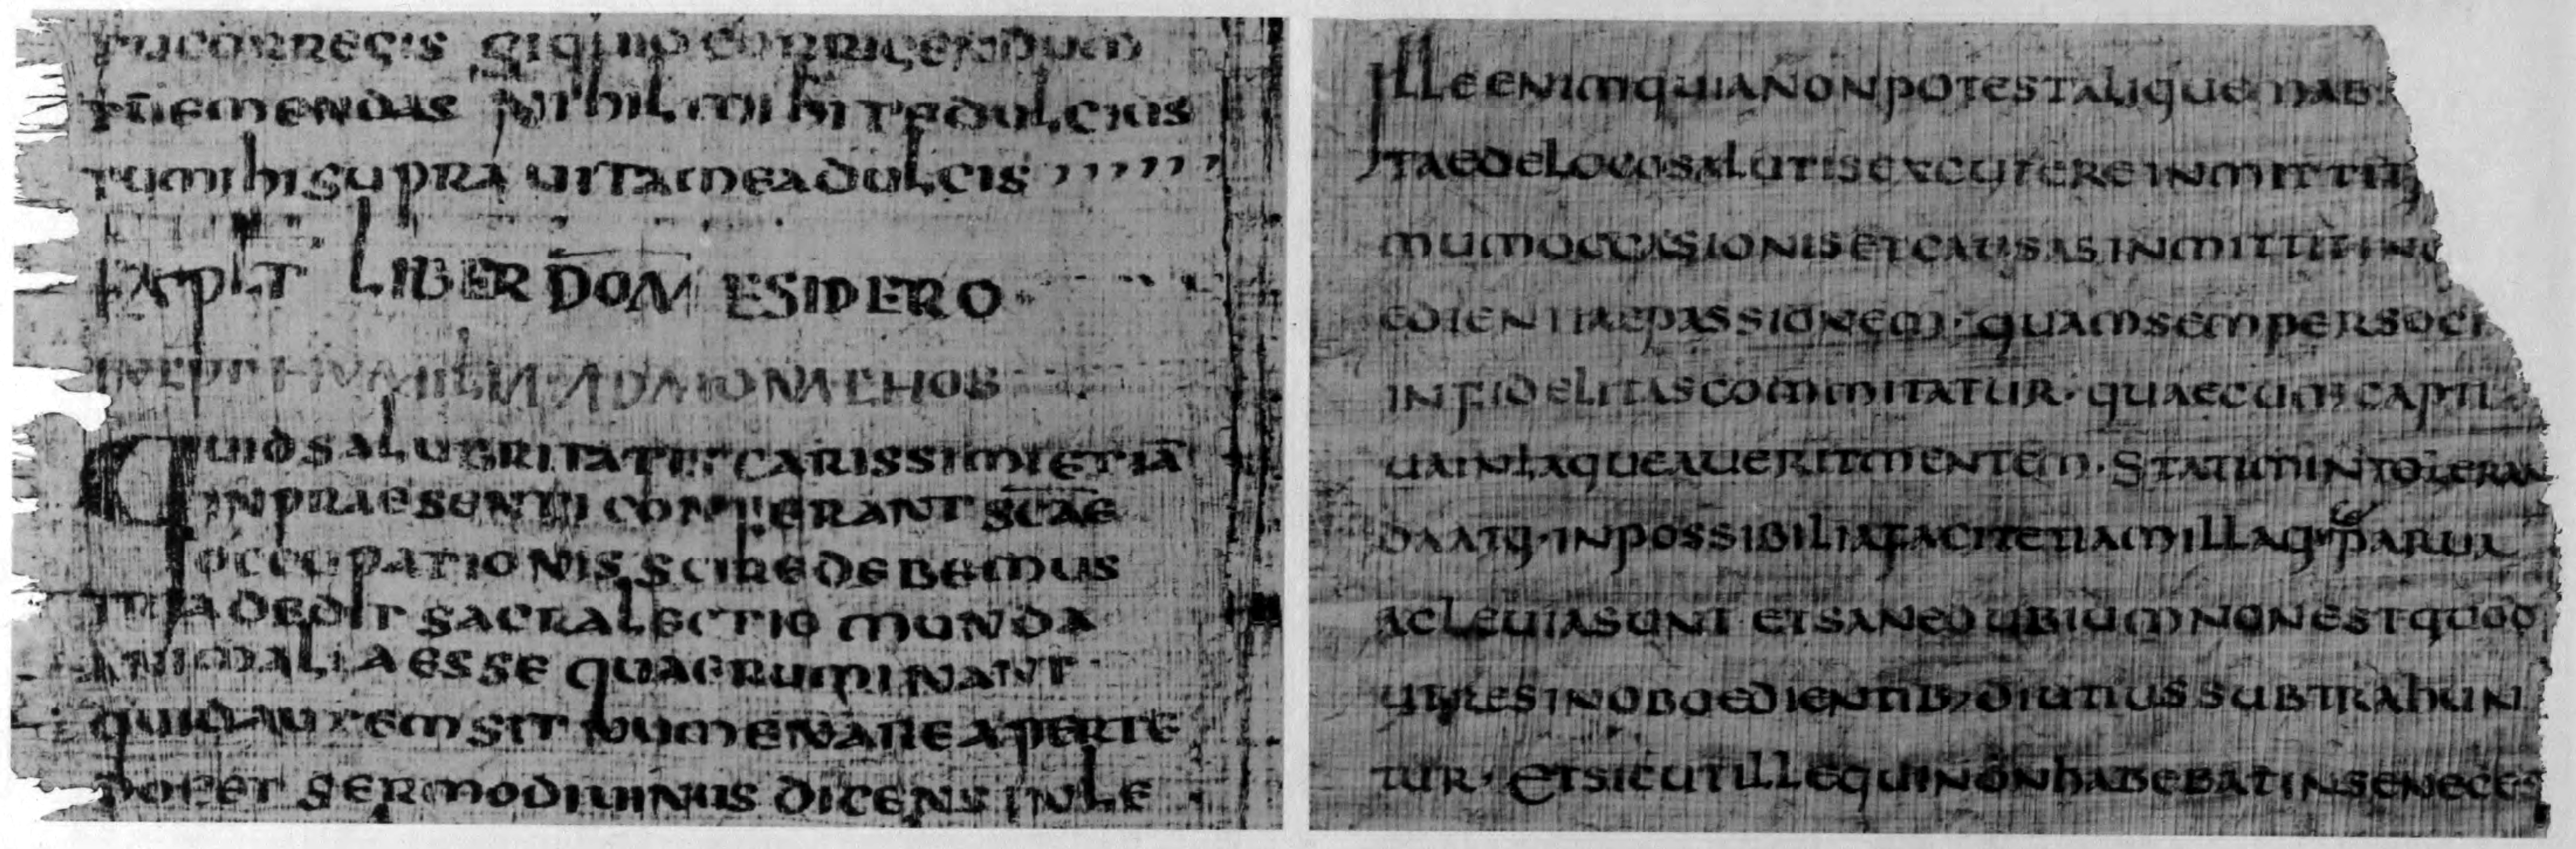 tu corregis si quid corrigendum
tu emendas nihil mihi te dulcius
tu mihi supra vita mea dulcis , , , , , ,
LIBER DOM ESIDERO
AD AION
Quid salubritati carissimi etiā
in praesenti conferant scae
occupationis scire debemus
dedit sacra lectio munda
animalia esse quae ruminant
quid autem sit rumenare aperte
docet sermo divinus dicens in le
Ille enim quia non potest aliquem ab
ta e de loco salutis excutere inmittit
mum occasionis et causas inmittit ino
edientiae passionem · quam semper soci
infidelitas commitatur · quae cum capti
va inlaqueaverit mentem · statum intoleran
da atq· inpossibilia facit etiam illa q· parva
ac levia sunt et sane dubium non est quod
vires inoboedientib, diutius subtrahun
tur · Et sicut ille qui non habebat in se neces